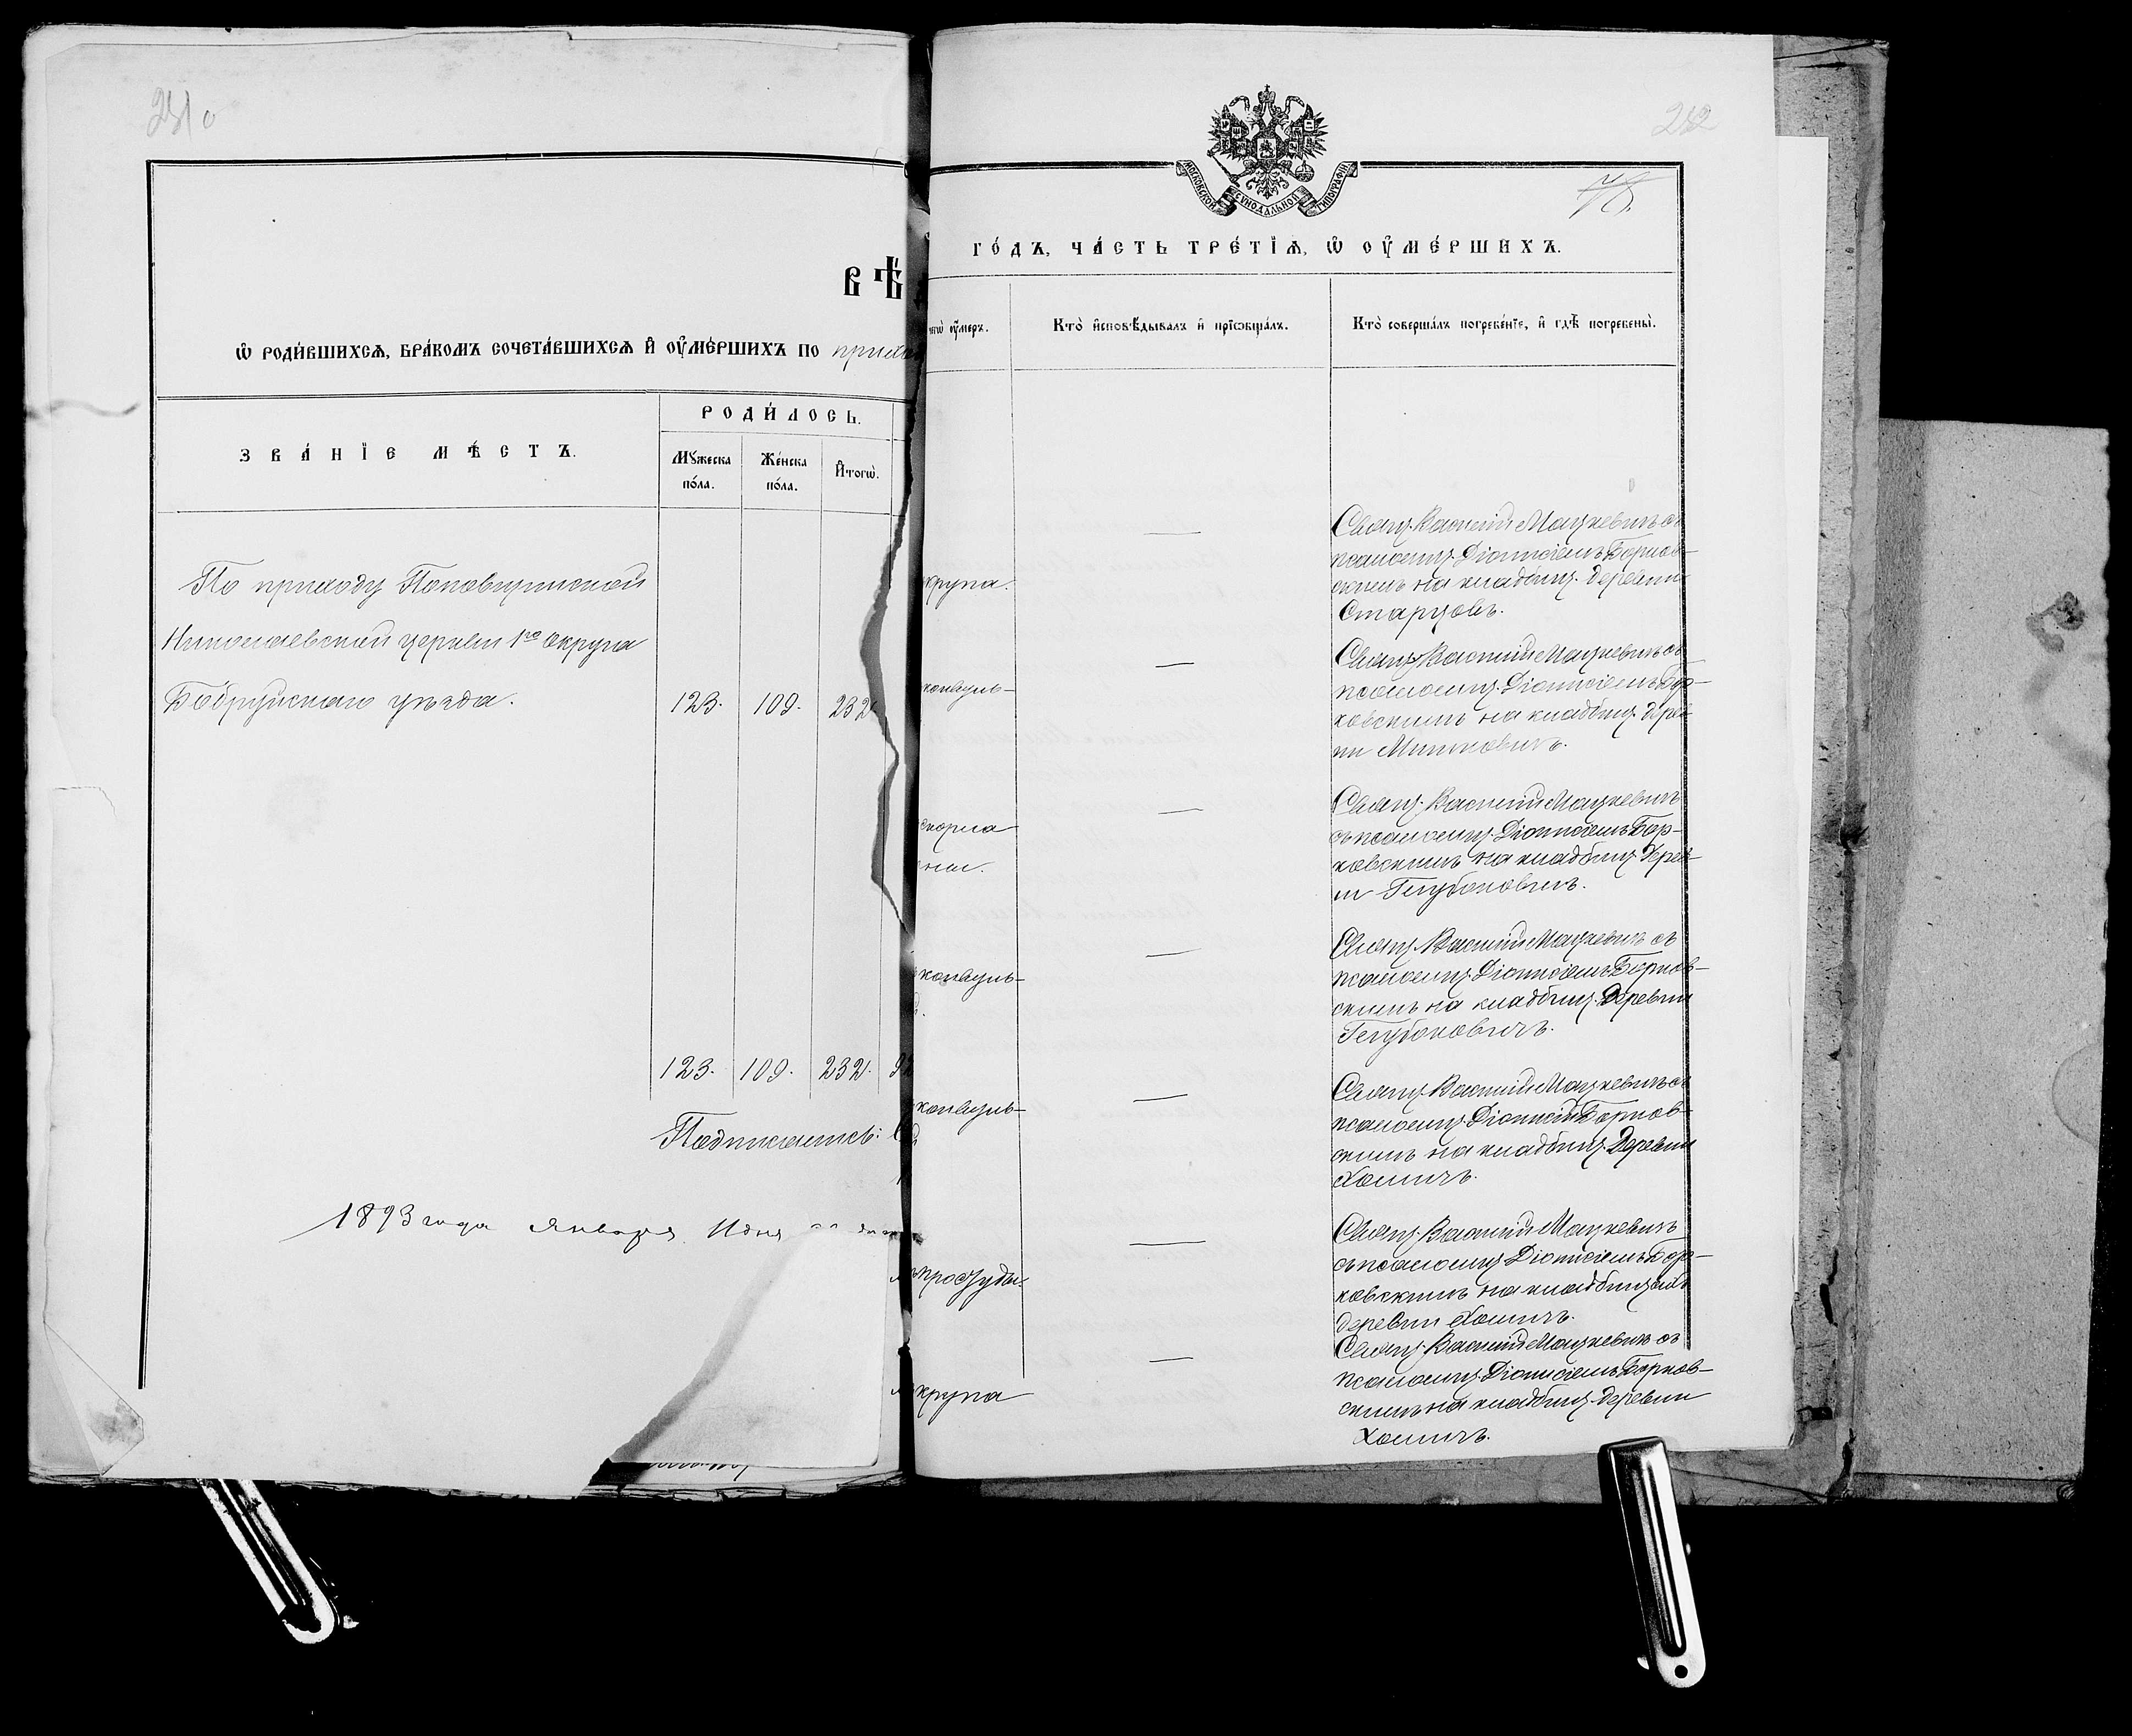 251 о
ВѢ
Ѿ РОДИ́ВШИХСѦ, БРА́КОМЪ СОЧЕТА́ВШИХСѦ И҆ ОУ҆МЕ́РШИХЪ ПО прихо
ЗВА́НЇЕ МѢ́СТЪ.
РОДИ́ЛОСЬ.
Мꙋ́жеска по́ла.
Же́нска по́ла.
И҆тогѡ̀.
По приходу Поповщинской
Николаевской церкви 1го округа
Бобруйскаго уѣзда.
123.
109.
232
123.
109.
232.
92
Подписались:
1893 года Января
252
МОСКОВСКОЙ СѴНОДАЛЬНОЙ ТИПОГРАФІИ
ГО́ДЪ, ЧА́СТЬ ТРЕ́ТЇѦ, Ѿ ОУ҆МЕ́РШИХЪ.
чегѡ̀ ᲂу҆́меръ.
Кто̀ и҆сповѣ́дывалъ и҆ прїѡбща́лъ.
Кто̀ соверша́лъ погребе́нїе, и҆ гдѣ̀ погребены̀.
крупа.
—
Свящ. Василій Мацкевичъ съ
псаломщ. Діонисіемъ Борков-
скимъ на кладбищ. деревни
Старцовъ.
конвуль-
—
Свящ. Василій Мацкевичъ съ
псаломщ. Діонисіемъ Бор-
ковскимъ на кладбищ. дерев-
ни Мышковичъ.
—
Свящ. Василій Мацкевичъ
съ псаломщ. Діонисіемъ Бор-
ковскимъ на кладбищ. Дерев-
ни Глубоковичъ.
конвуль-
—
Свящ. Василій Мацкевичъ съ
псаломщ. Діонисіемъ Борков-
скимъ на кладбищ. Деревни
Глубоковичъ.
конвуль-
—
Свящ. Василій Мацкевичъ съ
псаломщ. Діонисіемъ Борков-
скимъ на кладбищ. Деревни
Хомичъ.
простуды.
—
Свящ. Василій Мацкевичъ
съ псаломщ. Діонисіемъ Бор-
ковскимъ на кладбищѣ
деревни Хомичъ.
крупа
—
Свящ. Василій Мацкевичъ съ
псаломщ. Діонисіемъ Борков-
скимъ на кладбищ. деревни
Хомичъ.